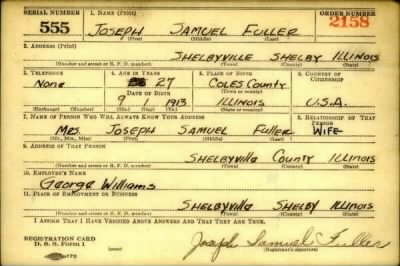 SERIAL NUMBER 1. NAME (Print) ORDER NUMBER
555 JOSEPH SAMUEL FULLER 2158
(First) (Middle) (Last)
2. ADDRESS (Print)
SHELBYVILLE SHELBY ILLINOIS
(Number and street or R. F. D. number) (Town) (County) (State)
3. TELEPHONE 4. AGE IN YEARS 5. PLACE OF BIRTH 6. COUNTRY OF CITIZENSHIP
None 27 COLES County
DATE OF BIRTH (Town or county)
9 1 1913 ILLINOIS U.S.A.
(Exchange) (Number) (Mo.) (Day) (Yr.) (State or country)
7. NAME OF PERSON WHO WILL ALWAYS KNOW YOUR ADDRESS 8. RELATIONSHIP OF THAT PERSON
Mrs. JOSEPH SAMUEL Fuller WIFE
(Mr., Mrs., Miss) (First) (Middle) (Last)
9. ADDRESS OF THAT PERSON
SHELBYVIlle County ILLINOIS
(Number and street or R. F. D. number) (Town) (County) (State)
10. EMPLOYER'S NAME
George Williams
11. PLACE OF EMPLOYMENT OR BUSINESS
SHELBYVIlle SHELBY ILLINOIS
(Number and street or R. F. D. number) (Town) (County) (State)
I AFFIRM THAT I HAVE VERIFIED ABOVE ANSWERS AND THAT THEY ARE TRUE.
REGISTRATION CARD
D. S. S. Form 1 Joseph Samuel Fuller
(Registrant's signature)